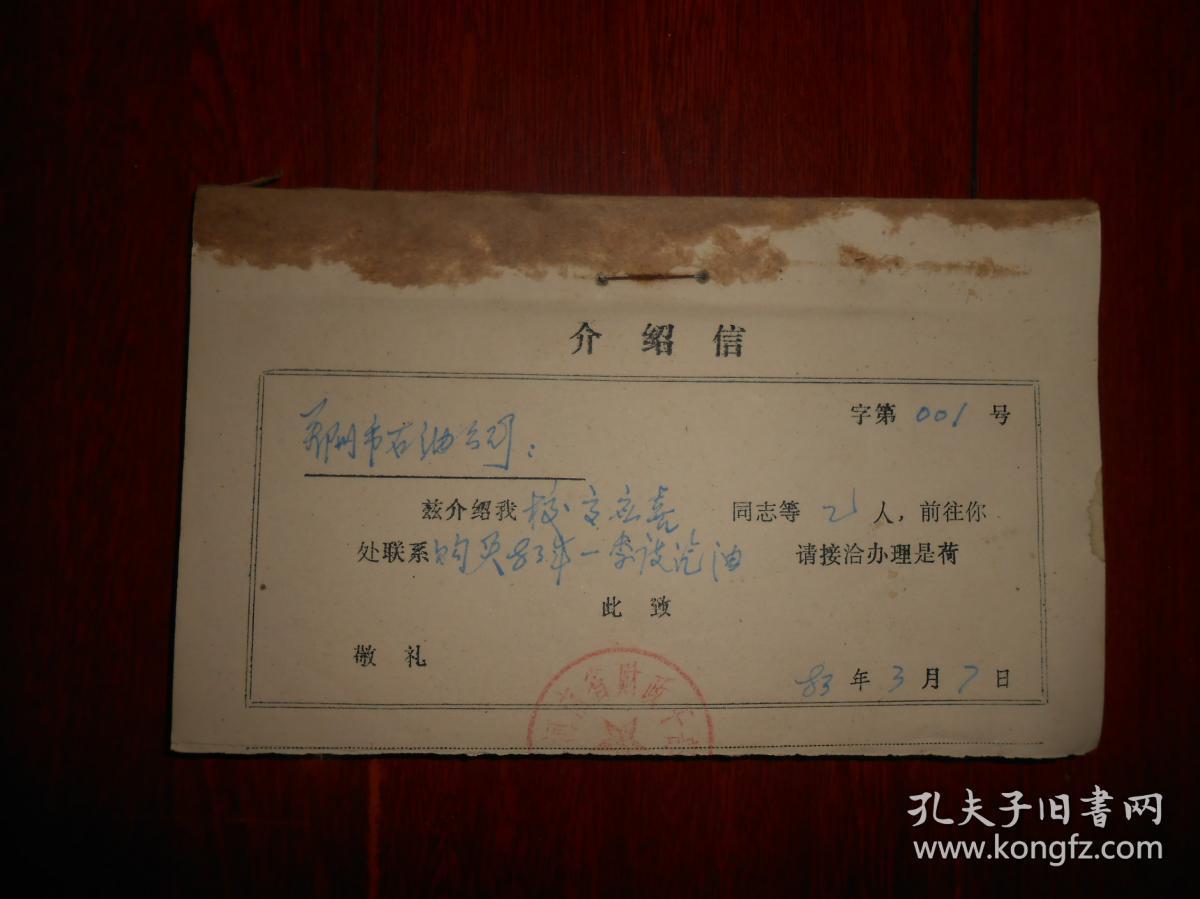 介绍信
字第 001 号
郑州市石油公司：
兹介绍我校 应喜 同志等 2 人，前往你
处联系购买83年一季度汽油 请接洽办理是荷
此致
敬礼
83年3月7日
河南省财政
孔夫子旧书网
www.kongfz.com